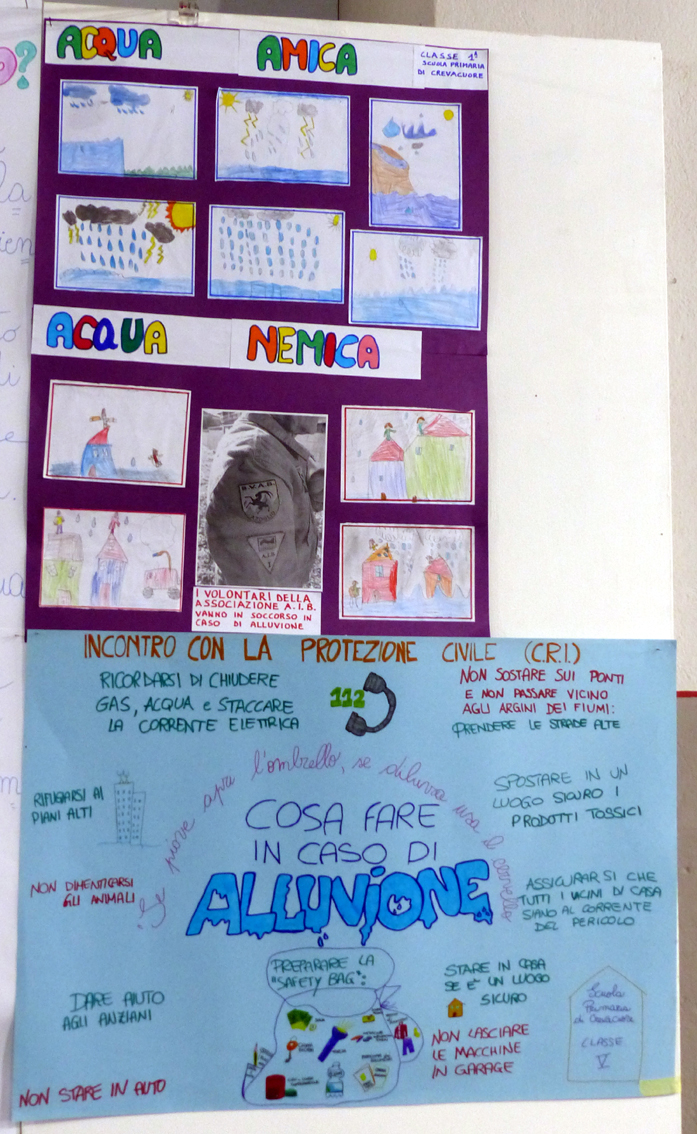 ACQUA AMICA
CLASSE 1ª
SCUOLA PRIMARIA
DI CREVACUORE
ACQUA NEMICA
I VOLONTARI DELLA
ASSOCIAZIONE A.I.B.
VANNO IN SOCCORSO IN
CASO DI ALLUVIONE
INCONTRO CON LA PROTEZIONE CIVILE (C.R.I.)
RICORDARSI DI CHIUDERE
GAS, ACQUA E STACCARE
LA CORRENTE ELETTRICA
112
NON SOSTARE SUI PONTI
E NON PASSARE VICINO
AGLI ARGINI DEI FIUMI:
PRENDERE LE STRADE ALTE
Se piove apri l'ombrello, se diluvia usa il cervello
RIFUGIARSI AI
PIANI ALTI
SPOSTARE IN UN
LUOGO SICURO I
PRODOTTI TOSSICI
COSA FARE
IN CASO DI
ALLUVIONE
NON DIMENTICARSI
GLI ANIMALI
ASSICURARSI CHE
TUTTI I VICINI DI CASA
SIANO AL CORRENTE
DEL PERICOLO
PREPARARE LA
"SAFETY BAG":
STARE IN CASA
SE E' UN LUOGO
SICURO
DARE AIUTO
AGLI ANZIANI
NON LASCIARE
LE MACCHINE
IN GARAGE
Scuola
Primaria
di Crevacuore
CLASSE
V
NON STARE IN AUTO